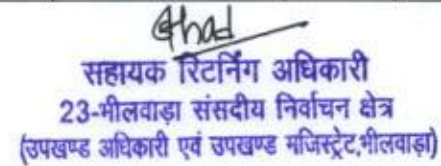 सहायक रिटर्निंग अधिकारी
23-भीलवाड़ा संसदीय निर्वाचन क्षेत्र
(उपखण्ड अधिकारी एवं उपखण्ड मजिस्ट्रेट,भीलवाड़ा)